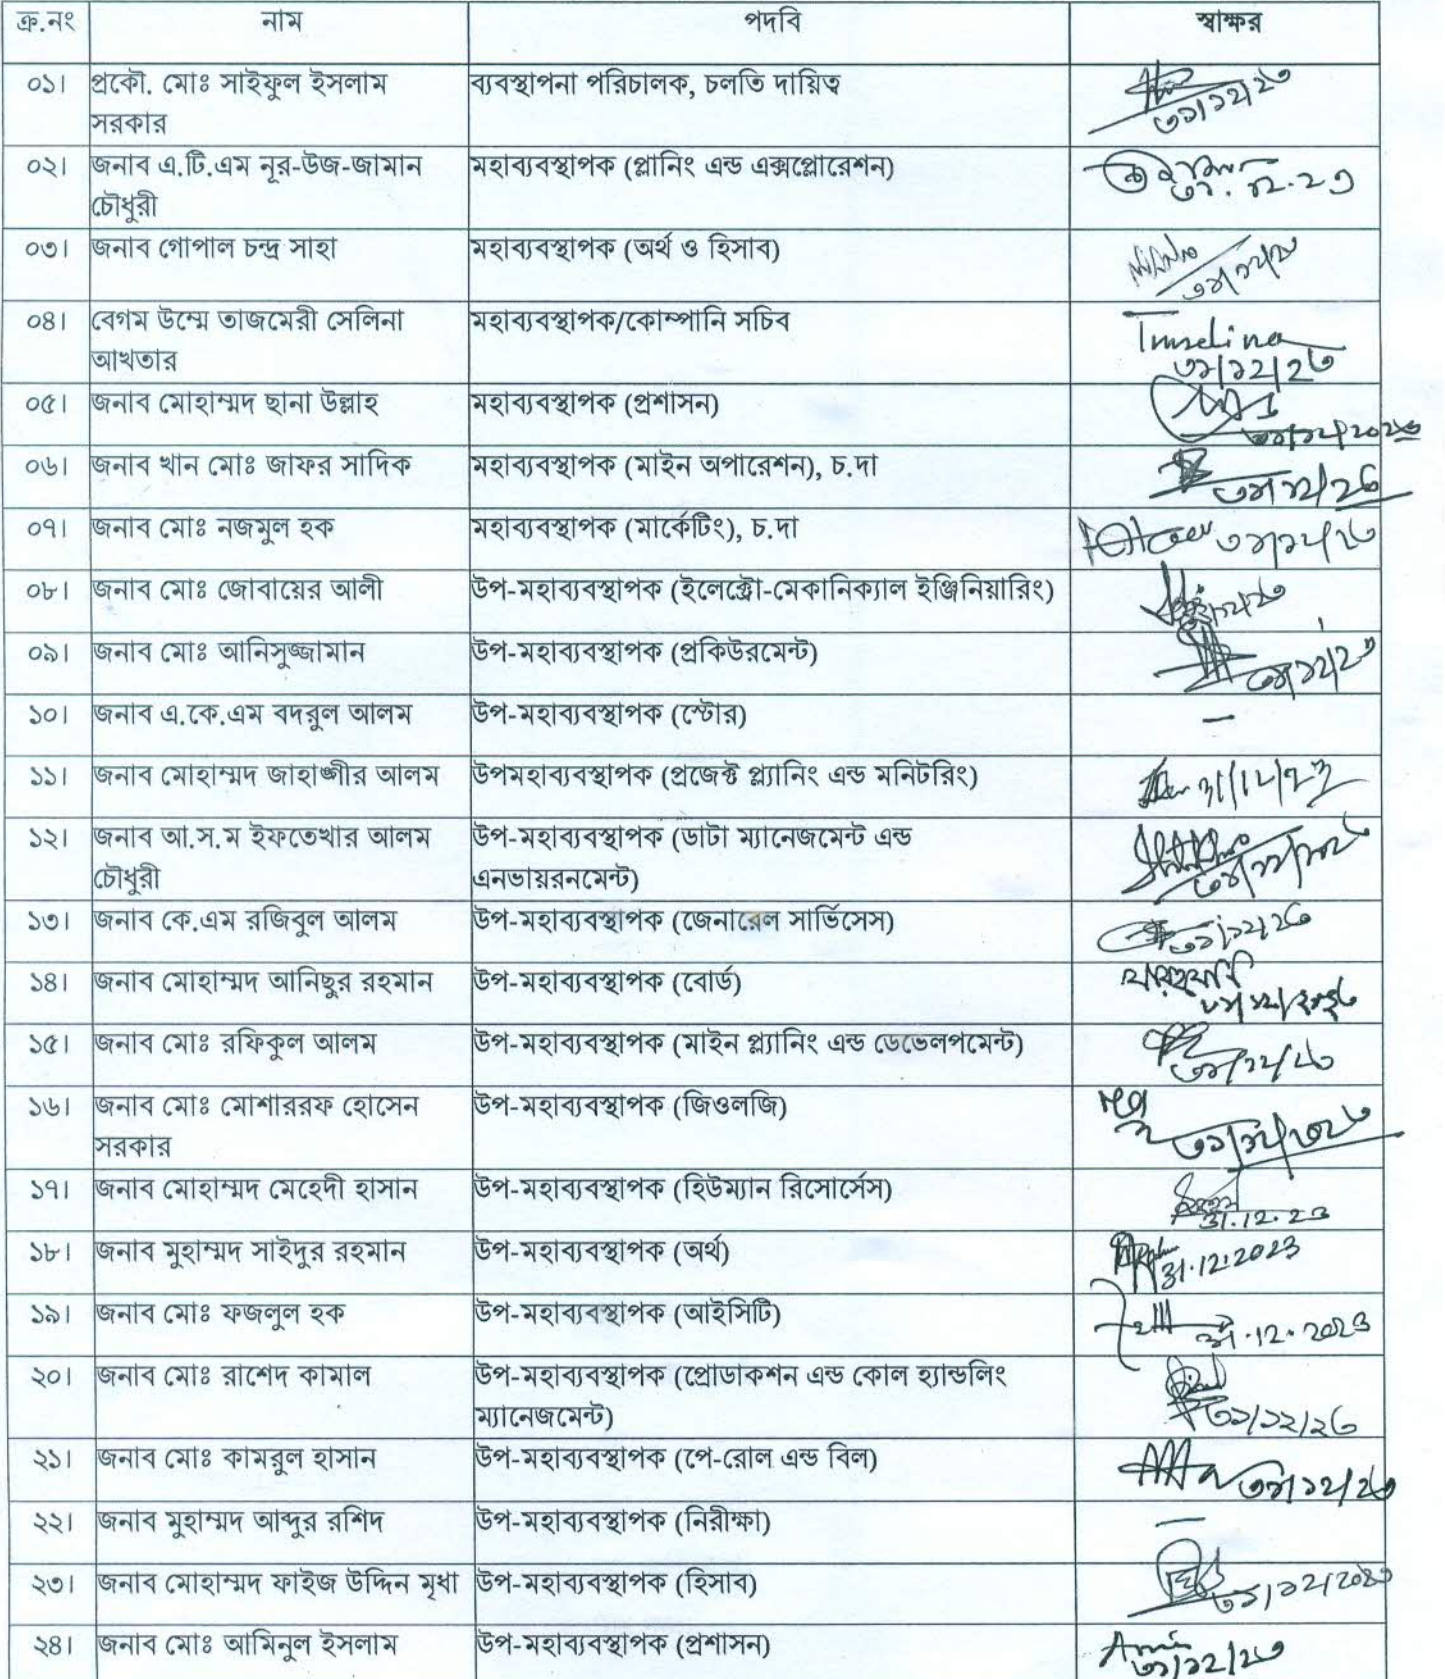 ক্র.নং নাম পদবি স্বাক্ষর
০১। প্রকৌ. মোঃ সাইফুল ইসলাম ব্যবস্থাপনা পরিচালক, চলতি দায়িত্ব
সরকার ৩১/১২/২৩
০২। জনাব এ.টি.এম নূর-উজ-জামান মহাব্যবস্থাপক (প্লানিং এন্ড এক্সপ্লোরেশন)
চৌধুরী ৩১.১২.২৩
০৩। জনাব গোপাল চন্দ্র সাহা মহাব্যবস্থাপক (অর্থ ও হিসাব)
০৪। বেগম উম্মে তাজমেরী সেলিনা মহাব্যবস্থাপক/কোম্পানি সচিব
আখতার ৩১/১২/২৩
০৫। জনাব মোহাম্মদ ছানা উল্লাহ মহাব্যবস্থাপক (প্রশাসন)
৩১/১২/২০২৩
০৬। জনাব খান মোঃ জাফর সাদিক মহাব্যবস্থাপক (মাইন অপারেশন), চ.দা
৩১/১২/২৩
০৭। জনাব মোঃ নজমুল হক মহাব্যবস্থাপক (মার্কেটিং), চ.দা ৩১/১২/২৩
০৮। জনাব মোঃ জোবায়ের আলী উপ-মহাব্যবস্থাপক (ইলেক্ট্রো-মেকানিক্যাল ইঞ্জিনিয়ারিং)
০৯। জনাব মোঃ আনিসুজ্জামান উপ-মহাব্যবস্থাপক (প্রকিউরমেন্ট)
৩১/১২/২৩
১০। জনাব এ.কে.এম বদরুল আলম উপ-মহাব্যবস্থাপক (স্টোর) –
১১। জনাব মোহাম্মদ জাহাঙ্গীর আলম উপমহাব্যবস্থাপক (প্রজেক্ট প্ল্যানিং এন্ড মনিটরিং) 31/12/23
১২। জনাব আ.স.ম ইফতেখার আলম উপ-মহাব্যবস্থাপক (ডাটা ম্যানেজমেন্ট এন্ড
চৌধুরী এনভায়রনমেন্ট)
১৩। জনাব কে.এম রজিবুল আলম উপ-মহাব্যবস্থাপক (জেনারেল সার্ভিসেস) ৩১/১২/২৩
১৪। জনাব মোহাম্মদ আনিছুর রহমান উপ-মহাব্যবস্থাপক (বোর্ড)
৩১/১২/২০২৩
১৫। জনাব মোঃ রফিকুল আলম উপ-মহাব্যবস্থাপক (মাইন প্ল্যানিং এন্ড ডেভেলপমেন্ট)
৩১/১২/২৩
১৬। জনাব মোঃ মোশাররফ হোসেন উপ-মহাব্যবস্থাপক (জিওলজি)
সরকার ৩১/১২/২০২৩
১৭। জনাব মোহাম্মদ মেহেদী হাসান উপ-মহাব্যবস্থাপক (হিউম্যান রিসোর্সেস)
31.12.23
১৮। জনাব মুহাম্মদ সাইদুর রহমান উপ-মহাব্যবস্থাপক (অর্থ) 31.12.2023
১৯। জনাব মোঃ ফজলুল হক উপ-মহাব্যবস্থাপক (আইসিটি) 31.12.2023
২০। জনাব মোঃ রাশেদ কামাল উপ-মহাব্যবস্থাপক (প্রোডাকশন এন্ড কোল হ্যান্ডলিং
ম্যানেজমেন্ট) ৩১/১২/২৩
২১। জনাব মোঃ কামরুল হাসান উপ-মহাব্যবস্থাপক (পে-রোল এন্ড বিল)
৩১/১২/২৩
২২। জনাব মুহাম্মদ আব্দুর রশিদ উপ-মহাব্যবস্থাপক (নিরীক্ষা) –
২৩। জনাব মোহাম্মদ ফাইজ উদ্দিন মৃধা উপ-মহাব্যবস্থাপক (হিসাব) ৩১/১২/২০২৩
২৪। জনাব মোঃ আমিনুল ইসলাম উপ-মহাব্যবস্থাপক (প্রশাসন)
৩১/১২/২৩